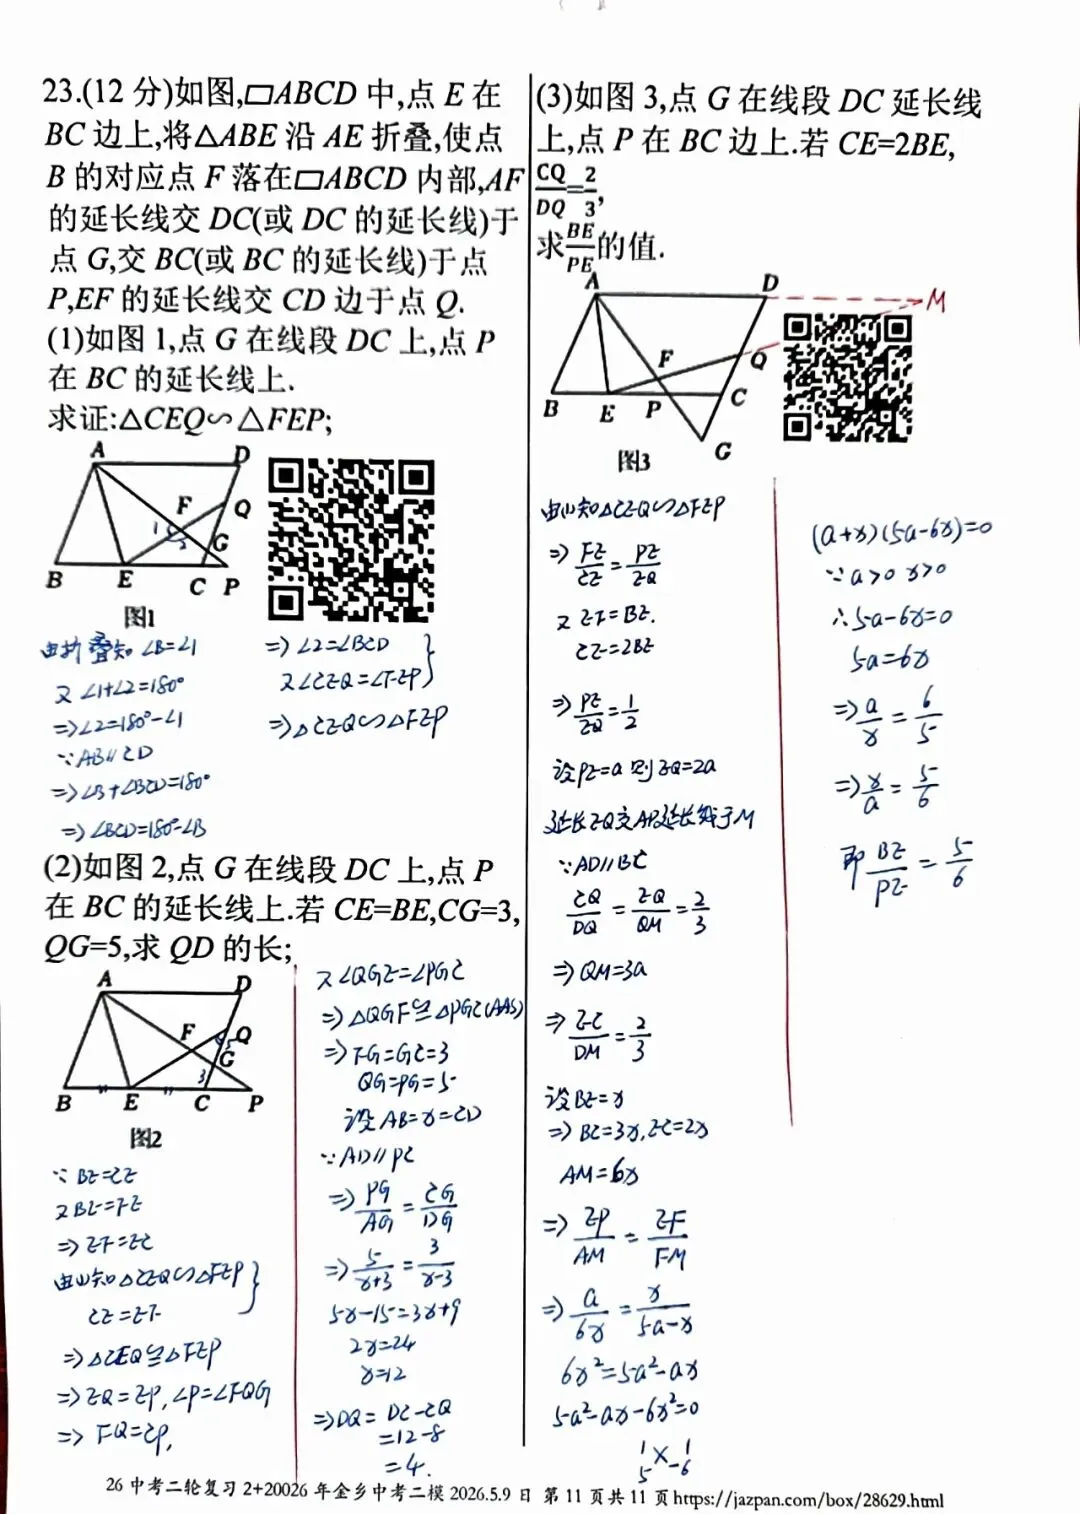 23.(12 分)如图,▱ABCD 中,点 E 在
BC 边上,将△ABE 沿 AE 折叠,使点
B 的对应点 F 落在▱ABCD 内部,AF
的延长线交 DC(或 DC 的延长线)于
点 G,交 BC(或 BC 的延长线)于点
P,EF 的延长线交 CD 边于点 Q.
(1)如图 1,点 G 在线段 DC 上,点 P
在 BC 的延长线上.
求证:△CEQ∽△FEP;
A D F Q 1 2 G B E C P
图1
由折叠知 ∠B=∠1
又 ∠1+∠2=180°
=>∠2=180°-∠1
∵AB∥CD
=>∠B+∠BCD=180°
=>∠BCD=180°-∠B
=>∠2=∠BCD
又∠CEQ=∠FEP
=>△CEQ∽△FEP
(2)如图 2,点 G 在线段 DC 上,点 P
在 BC 的延长线上.若 CE=BE,CG=3,
QG=5,求 QD 的长;
A D F Q 5 G 3 B E C P
图2
∵BE=CE
又BE=FE
=>EF=EC
由(1)知△CEQ∽△FEP
CE=EF
=>△CEQ≌△FEP
=>EQ=EP,∠P=∠FQG
=>FQ=CP,
又∠QGF=∠PGC
=>△QGF≌△PGC(AAS)
=>FG=GC=3
QG=PG=5
设AB=x=CD
∵AD∥PC
=>PG/AG=CG/DG
=>5/(x+3)=3/(x-3)
5x-15=3x+9
2x=24
x=12
=>DQ=DC-CQ
=12-8
=4.
(3)如图 3,点 G 在线段 DC 延长线
上,点 P 在 BC 边上.若 CE=2BE,
CQ/DQ=2/3,
求BE/PE的值.
A D M F Q B E P C G
图3
由(1)知△CEQ∽△FEP
=>FE/CE=PE/EQ
又EF=BE.
CE=2BE
=>PE/EQ=1/2
设PE=a则EQ=2a
延长EQ交AD延长线于M
∵AD∥BC
CQ/DQ=EQ/QM=2/3
=>QM=3a
=>EC/DM=2/3
设BE=x
=>BC=3x,EC=2x
AM=6x
=>EP/AM=EF/FM
=>a/6x=x/(5a-x)
6x²=5a²-ax
5a²-ax-6x²=0
1 1
5 -6
(a+x)(5a-6x)=0
∵a>0 x>0
∴5a-6x=0
5a=6x
=>a/x=6/5
=>x/a=5/6
即BE/PE=5/6
26 中考二轮复习 2+20026 年金乡中考二模 2026.5.9 日 第 11 页共 11 页 https://jazpan.com/box/28629.html